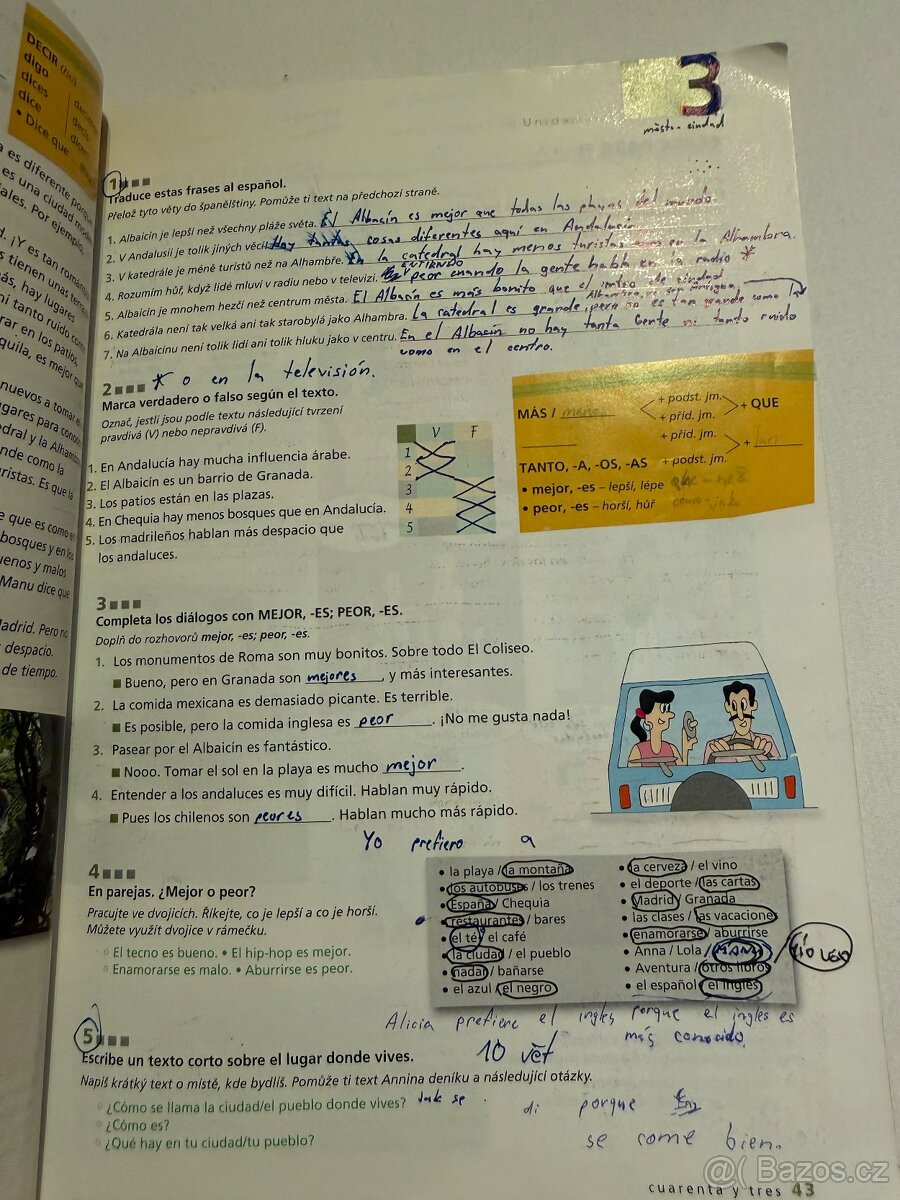 DECIR
digo
dices
dice
• Dice que
3
město - ciudad
1
Traduce estas frases al español.
Přelož tyto věty do španělštiny. Pomůže ti text na předchozí straně.
1. Albaicín je lepší než všechny pláže světa. El Albacín es mejor que todas las playas del mundo.
2. V Andalusii je tolik jiných věcí. Hay tantas cosas diferentes aquí en Andalucía
3. V katedrále je méně turistů než na Alhambře. En la catedral hay menos turistas que en la Alhambra.
4. Rozumím hůř, když lidé mluví v radiu nebo v televizi. ENTIENDO peor cuando la gente habla en la radio *
5. Albaicín je mnohem hezčí než centrum města. El Albacín es más bonito que el centro de ciudad
6. Katedrála není tak velká ani tak starobylá jako Alhambra. La catedral es grande, pero no es tan grande como la
7. Na Albaicínu není tolik lidí ani tolik hluku jako v centru. En el Albacín no hay tanta gente ni tanto ruido
como en el centro.
* o en la televisión.
2
Marca verdadero o falso según el texto.
Označ, jestli jsou podle textu následující tvrzení
pravdivá (V) nebo nepravdivá (F).
1. En Andalucía hay mucha influencia árabe.
2. El Albaicín es un barrio de Granada.
3. Los patios están en las plazas.
4. En Chequia hay menos bosques que en Andalucía.
5. Los madrileños hablan más despacio que
los andaluces.
V F
1
2
3
4
5
MÁS / menos
+ podst. jm.
+ příd. jm.
+ QUE
+ příd. jm.
TANTO, -A, -OS, -AS + podst. jm.
• mejor, -es – lepší, lépe que - než
• peor, -es – horší, hůř como - jako
3
Completa los diálogos con MEJOR, -ES; PEOR, -ES.
Doplň do rozhovorů mejor, -es; peor, -es.
1. Los monumentos de Roma son muy bonitos. Sobre todo El Coliseo.
Bueno, pero en Granada son mejores, y más interesantes.
2. La comida mexicana es demasiado picante. Es terrible.
Es posible, pero la comida inglesa es peor. ¡No me gusta nada!
3. Pasear por el Albaicín es fantástico.
Nooo. Tomar el sol en la playa es mucho mejor.
4. Entender a los andaluces es muy difícil. Hablan muy rápido.
Pues los chilenos son peores. Hablan mucho más rápido.
Yo prefiero a
4
En parejas. ¿Mejor o peor?
Pracujte ve dvojicích. Říkejte, co je lepší a co je horší.
Můžete využít dvojice v rámečku.
El tecno es bueno. • El hip-hop es mejor.
Enamorarse es malo. • Aburrirse es peor.
• la playa / la montaña
• los autobuses / los trenes
• España / Chequia
• restaurantes / bares
• el té / el café
• la ciudad / el pueblo
• nadar / bañarse
• el azul / el negro
• la cerveza / el vino
• el deporte / las cartas
• Madrid / Granada
• las clases / las vacaciones
• enamorarse / aburrirse
• Anna / Lola / MANU /
• Aventura / otros libros
• el español / el inglés
Alicia prefiere el ingles porque el ingles es
más conocido.
5
10 vět
Escribe un texto corto sobre el lugar donde vives.
Napiš krátký text o místě, kde bydlíš. Pomůže ti text Annina deníku a následující otázky.
¿Cómo se llama la ciudad/el pueblo donde vives? Jak se
¿Cómo es?
¿Qué hay en tu ciudad/tu pueblo?
di porque
se come bien.
cuarenta y tres 43
@ Bazos.cz